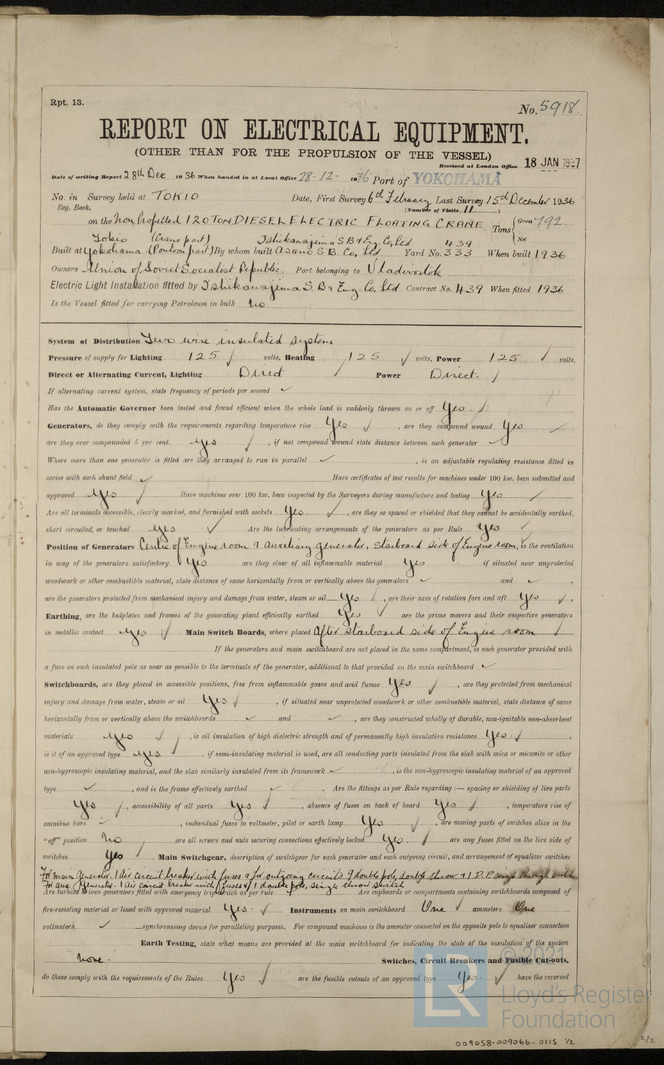 Rpt. 13.
No. 5918.
REPORT ON ELECTRICAL EQUIPMENT.
(OTHER THAN FOR THE PROPULSION OF THE VESSEL)
Received at London Office 18 JAN 1937
Date of writing Report 28th Dec 1936 When handed in at Local Office 28-12-1936 Port of YOKOHAMA
No. in Survey held at TOKIO Date, First Survey 6th February Last Survey 15th December 1936
Reg. Book. (Number of Visits 11)
on the Non Propelled 120 TON DIESEL ELECTRIC FLOATING CRANE Tons Gross 792 Net
Tokio (Crane part) Ishikawajima S.B & Eng. Co, Ltd 439
Built at Yokohama (Pontoon part) By whom built Asano S.B. Co, Ltd Yard No. 333 When built 1936
Owners Union of Soviet Socialist Republic Port belonging to Vladivostok
Electric Light Installation fitted by Ishikawajima S. B & Eng. Co, Ltd Contract No. 439 When fitted 1936
Is the Vessel fitted for carrying Petroleum in bulk No
System of Distribution Two wire insulated system
Pressure of supply for Lighting 125 ✓ volts, Heating 125 ✓ volts, Power 125 ✓ volts.
Direct or Alternating Current, Lighting Direct ✓ Power Direct. ✓
If alternating current system, state frequency of periods per second ✓
Has the Automatic Governor been tested and found efficient when the whole load is suddenly thrown on or off Yes. ✓
Generators, do they comply with the requirements regarding temperature rise Yes ✓, are they compound wound Yes ✓
are they over compounded 5 per cent. Yes ✓, if not compound wound state distance between each generator ✓
Where more than one generator is fitted are they arranged to run in parallel ✓, is an adjustable regulating resistance fitted in
series with each shunt field ✓ Have certificates of test results for machines under 100 kw. been submitted and
approved Yes ✓ Have machines over 100 kw. been inspected by the Surveyors during manufacture and testing Yes ✓
Are all terminals accessible, clearly marked, and furnished with sockets Yes. ✓, are they so spaced or shielded that they cannot be accidentally earthed,
short circuited, or touched Yes ✓ Are the lubricating arrangements of the generators as per Rule Yes ✓
Position of Generators Centre of Engine room & auxiliary generator, starboard side of Engine room, is the ventilation
in way of the generators satisfactory Yes ✓ are they clear of all inflammable material Yes ✓ if situated near unprotected
woodwork or other combustible material, state distance of same horizontally from or vertically above the generators ✓ and ✓,
are the generators protected from mechanical injury and damage from water, steam or oil Yes ✓, are their axes of rotation fore and aft Yes ✓
Earthing, are the bedplates and frames of the generating plant efficiently earthed Yes ✓ are the prime movers and their respective generators
in metallic contact Yes ✓ Main Switch Boards, where placed After starboard side of Engine room ✓
If the generators and main switchboard are not placed in the same compartment, is each generator provided with
a fuse on each insulated pole as near as possible to the terminals of the generator, additional to that provided on the main switchboard ✓
Switchboards, are they placed in accessible positions, free from inflammable gases and acid fumes Yes ✓, are they protected from mechanical
injury and damage from water, steam or oil Yes ✓, if situated near unprotected woodwork or other combustible material, state distance of same
horizontally from or vertically above the switchboards ✓ and ✓, are they constructed wholly of durable, non-ignitable non-absorbent
materials Yes ✓, is all insulation of high dielectric strength and of permanently high insulation resistance Yes ✓,
is it of an approved type Yes ✓, if semi-insulating material is used, are all conducting parts insulated from the slab with mica or micanite or other
non-hygroscopic insulating material, and the slab similarly insulated from its framework ✓, is the non-hygroscopic insulating material of an approved
type ✓, and is the frame effectively earthed ✓. Are the fittings as per Rule regarding :— spacing or shielding of live parts
Yes ✓, accessibility of all parts Yes ✓, absence of fuses on back of board Yes ✓, temperature rise of
omnibus bars ✓, individual fuses to voltmeter, pilot or earth lamp Yes ✓, are moving parts of switches alive in the
"off" position No ✓ are all screws and nuts securing connections effectively locked Yes. ✓ are any fuses fitted on the live side of
switches Yes ✓ Main Switchgear, description of switchgear for each generator and each outgoing circuit, and arrangement of equalizer switches
For main Generator. 1 Air circuit breaker with fuses & for outgoing circuits 9 double pole double throw & 1 D.P. single through switch
For aux. Generator. 1 Air circuit breaker with fuses & 1 double pole, single throw switch
Are turbine driven generators fitted with emergency trip switch as per rule Are cupboards or compartments containing switchboards composed of
fire-resisting material or lined with approved material Yes ✓ Instruments on main switchboard One ✓ ammeters One
voltmeters. ✓ synchronising device for paralleling purposes. For compound machines is the ammeter connected on the opposite pole to equaliser connection
Earth Testing, state what means are provided at the main switchboard for indicating the state of the insulation of the system
None. Switches, Circuit Breakers and Fusible Cut-outs,
do these comply with the requirements of the Rules Yes ✓ are the fusible cutouts of an approved type Yes. ✓ have the reversed
© 2021
LR
Lloyd's Register
Foundation
009058-009066-0115 1/2